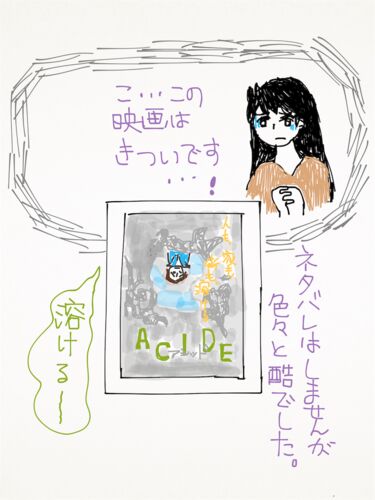 こ…この
映画は
きついです
…!
ACIDE
アシッド
ネタバレはしませんが
色々と酷でした。
溶ける〜